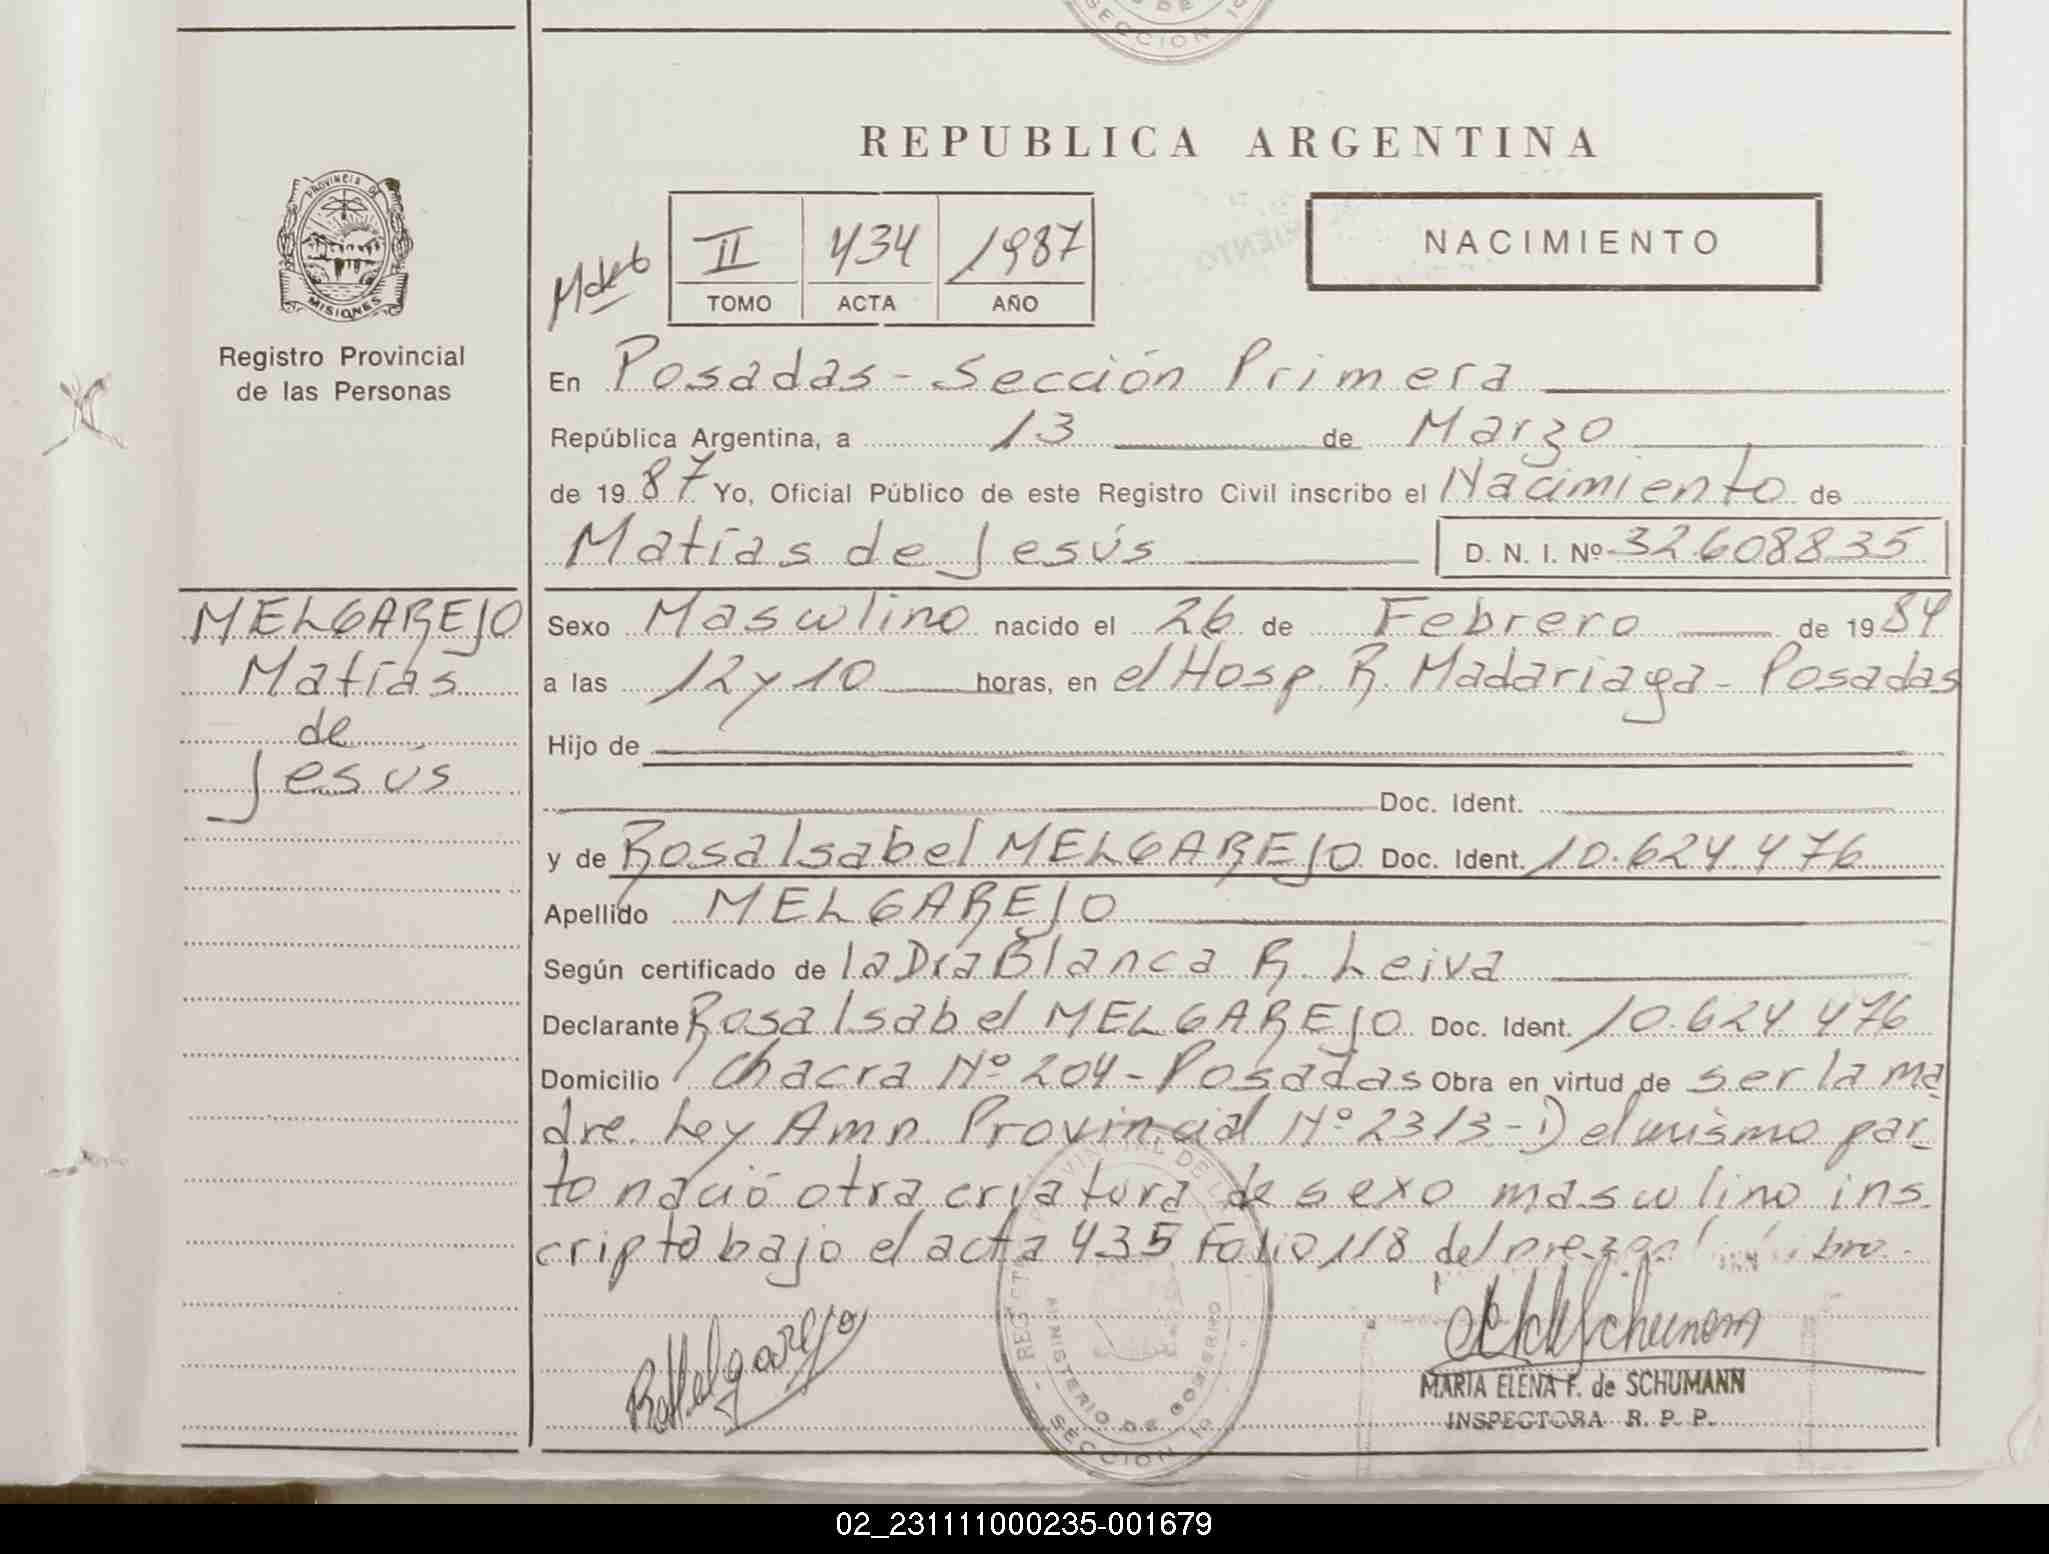 SECCION 1º
REPUBLICA ARGENTINA
PROVINCIA DE
MISIONES
II 434 1987
TOMO ACTA AÑO
NACIMIENTO
Registro Provincial
de las Personas
En Posadas - Sección Primera
República Argentina, a 13 de Marzo
de 1987 Yo, Oficial Público de este Registro Civil inscribo el Nacimiento de
Matías de Jesús D. N. I. Nº 32.608835
MELGAREJO
Matías
de
Jesús
Sexo Masculino nacido el 26 de Febrero de 1984
a las 12 y 10 horas, en el Hosp. R. Madariaga - Posadas
Hijo de
Doc. Ident.
y de Rosa Isabel MELGAREJO Doc. Ident. 10.624.476
Apellido MELGAREJO
Según certificado de la Dra Blanca R. Leiva
Declarante Rosa Isabel MELGAREJO Doc. Ident. 10.624 476
Domicilio Chacra Nº 204 - Posadas Obra en virtud de ser la ma
dre. Ley Amn. Provincial Nº 2313 - 1) del mismo par-
to nació otra criatura de sexo masculino ins-
cripta bajo el acta 435 Folio 118 del
REGISTRO PROVINCIAL DE
MINISTERIO DE GOBIERNO
SECCION 1º
R Melgarejo
MARIA ELENA F. de SCHUMANN
INSPECTORA R. P. P.
02_231111000235-001679